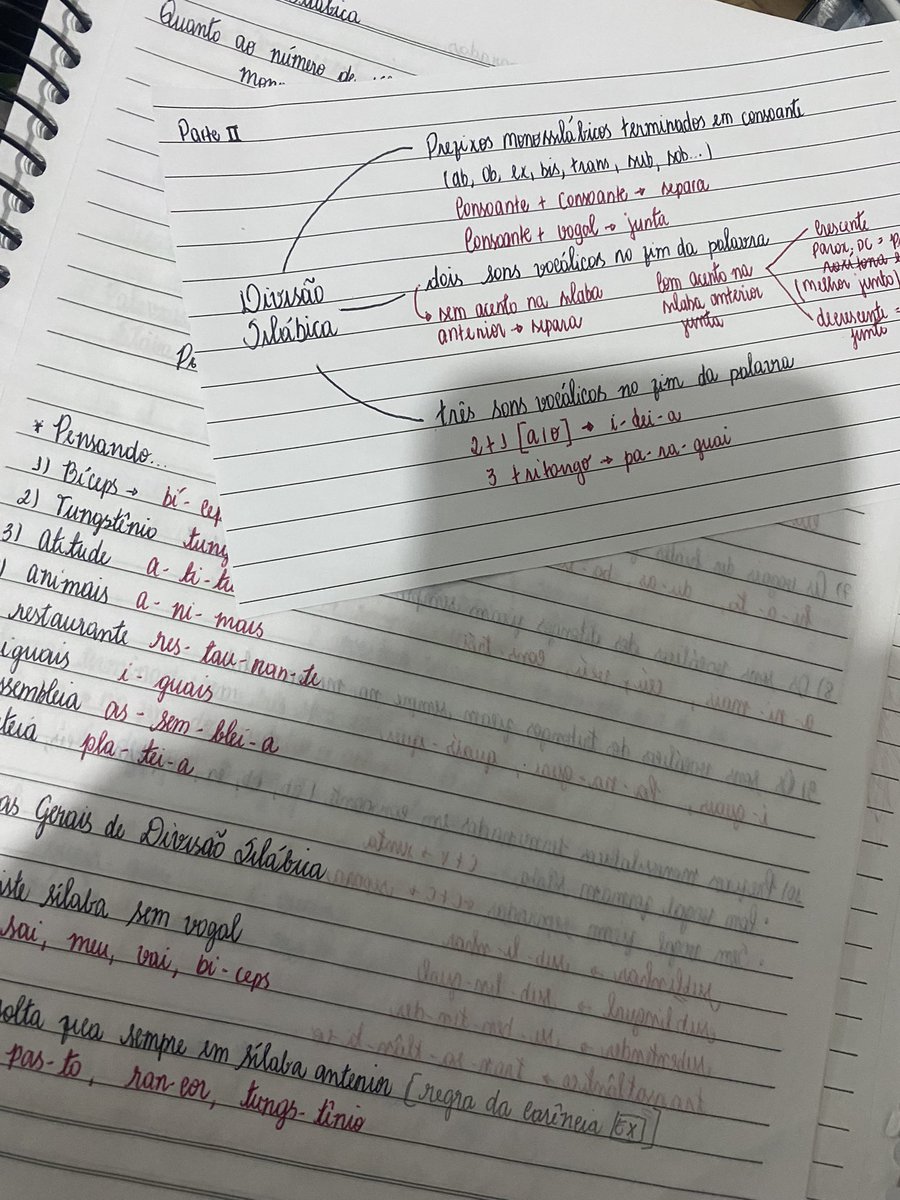 Quanto ao número de
Parte II
Prefixos monossilábicos terminados em consoante
(ab, ob, ex, bis, trans, sub, sob...)
Consoante + consoante → separa
Consoante + vogal → junta
Divisão
Silábica
dois sons vocálicos no fim da palavra
sem acento na sílaba
anterior → separa
Com acento na
sílaba anterior
junta
Crescente
parox, DC =
(melhor junto)
decrescente =
junto
três sons vocálicos no fim da palavra
2+1 [a/o] → i-dei-a
3 tritongo → pa-ra-guai
* Pensando...
1) Bíceps → bí-cep
2) Tungstênio tung
3) atitude a-ti-tu
) animais a-ni-mais
restaurante res-tau-ran-te
iguais i-guais
ssembleia as-sem-blei-a
teia pla-tei-a
as Gerais de Divisão Silábica
iste sílaba sem vogal
sai, meu, vai, bí-ceps
olta fica sempre em sílaba anterior [regra da carência Ex]
pas-to, ran-cor, tungs-tênio